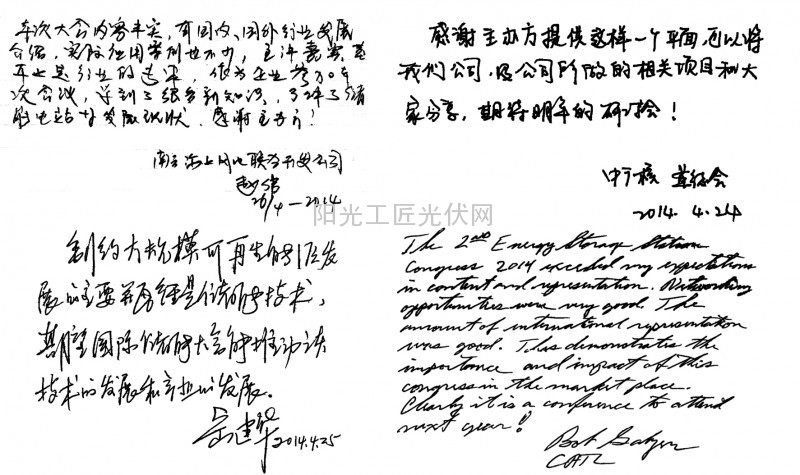 本次大会内容丰实，有国内、国外行业发展
介绍，实际应用案例也不少，主讲嘉宾基
本上是行业的专家，作为企业参加本
次会议，学到了很多新知识，了解了储
能电站的发展现状，感谢主办方！
南京海上风电联合开发公司
20/4-2014
感谢主办方提供这样一个平面，可以将
我们公司，及公司所做的相关项目和大
家分享，期待明年的研讨会！
中广核
2014. 4.24
阳光工匠光伏网
制约大规模可再生能源发
展的主要瓶颈是储能技术，
期望国际储能大会能推动该
技术的发展和产业的发展。
2014.4.25
The 2nd Energy Storage Station
Congress 2014 exceeded my expectations
in content and representation. Networking
opportunities were very good. The
amount of international representation
was good. This demonstrates the
importance and impact of this
congress in the market place.
Clearly it is a conference to attend
next year!
CATL